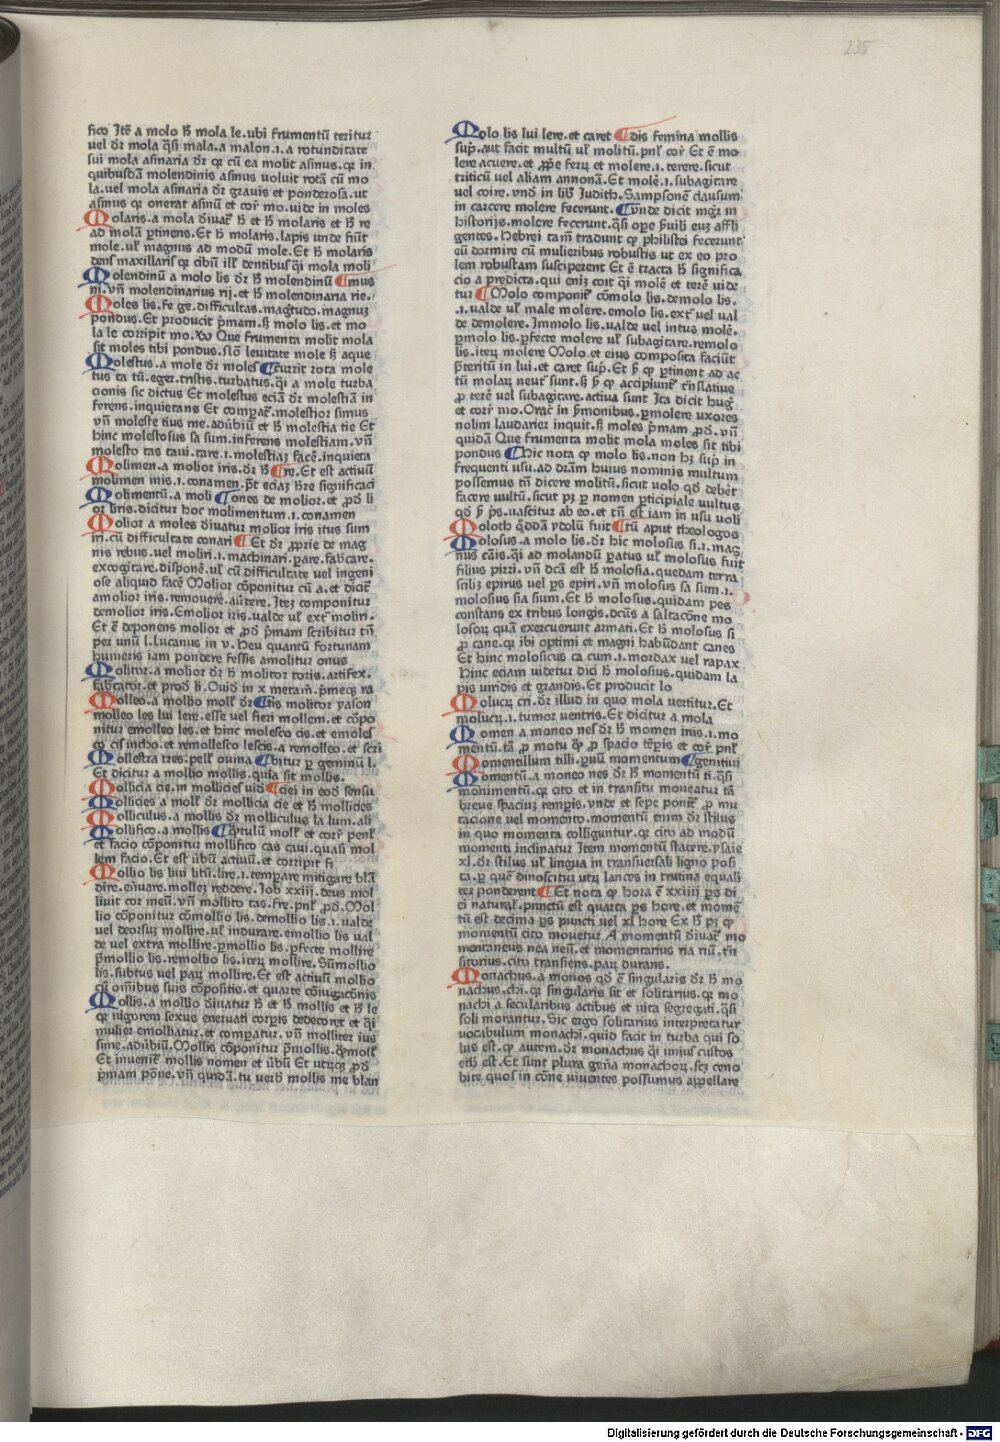 235
fico Itē a molo lꝫ mola le.ubi frumentū teritur
uel dꝛ mola q̄si mala.a malon.i.a rotunditate
sui mola asinaria dꝛ qꝛ cū ea molit asinus.qꝛ in
quibusdā molendinis asinus uoluit rotā cū mo
la.uel mola asinaria dꝛ grauis et ponderosa.ut
asinus qꝛ onerat asinū et coꝛ mo.uide in moles
Molaris.a mola ďiuať lꝫ et lꝫ molaris et lꝫ re
ad molā ptinens.Et lꝫ molaris.lapis unde fiūt
mole.uł magnus ad modū mole.Et lꝫ molaris
dens maxillaris qꝛ cibū ill' dentibus q̄i mola moli
Molendinū a molo lis dꝛ lꝫ molendinū ¶mus
ni.vn̄ molendinarius rij.et lꝫ molendinaria rie.
Moles lis.fe ge.difficultas.mag̃tudo.magnuꝫ
pondus.Et producit p̄mam.ꝫ molo lis.et mo
la le corripit mo.vō Que frumenta molit mola
sit moles tibi pondus.Nō leuitate mole ꝫ aque
Molestus.a mole dꝛ moles ¶currit rota mole
tus ta tū.eger.tristis.turbatus.q̄i a mole turba
cionis sic dictus Et molestus eciā dꝛ molestiā in
ferens.inquietans Et compať.molestior simus
vn̄ moleste tius me.adūbiū et lꝫ molestia tie Et
hinc molestosus sa sum.inferens molestiam.vn̄
molesto tas taui.tare.i.molestiaꝫ facē.inquieta
Molimen.a molior iris.dꝛ lꝫ ¶re.Et est actiuū
molimen inis.i.conamen.p̄t eciaꝫ hr̄e significaci
Molimentū.a moli ¶ones de molior.et ꝓd li
or liris.dicitur hoc molimentum.i.conamen
Molior a moles ďiuatur molior iris itus sum
iri.cū difficultate conari ¶Et dꝛ ꝓprie de mag
nis rebus.uel moliri.i.machinari.pare.fab̾care.
excogitare.disponē.uł cū difficultate uel ingeni
ose aliquid facē Molior cōponitur cū a.et diciť
amolior iris.remouere.auꝑtere.Iteꝫ componitur
demolior iris.Emolior iris.ualde uł exť moliri.
Et ē deponens molior et ꝓd p̄mam scribitur tn̄
per unū l.Lucanus in v.Heu quantū fortunam
humeris iam pondere fessis amolitur onus
Molitor.a molior dꝛ lꝫ molitor toris.artifex.
fab̾cator.et prod li.Ouid in x metam̄.p̄meqꝫ ra
Molleo.a mollio moll' dꝛ ¶tis molitor yason
molleo les lui lere.esse uel fieri mollem.et cōpo
nitur emolleo les.et hinc molesco cis.et emoles
co cis incho.et remollesco lescis.a remolleo.et scri
Mollestra tres.pell' ouina ¶bitur p geminū l.
Et dicitur a mollio mollis.quia sit mollis.
Mollicia cie.in mollicies uid ¶ciei in eod sensu
Mollicies a moll' dꝛ mollicia cie et lꝫ mollicies
Molliculus.a mollis dꝛ molliculus la lum.ali
Mollifico.a mollis ¶q̄ntulū moll' et corr̄ penľ
et facio cōponitur mollifico cas caui.quasi mol
lem facio.Et est ūbū actiuū.et corripit fi
Mollio lis liui litū.lire.i.tempare mitigare blā
dire.eneruare.molleꝫ reddere.Iob xxiij.deus mol
liuit cor meū.vn̄ mollito tas.fre.pnľ ꝓd.Mol
lio cōponitur cōmollio lis.demollio lis.i.ualde
uel deorsuꝫ mollire.uł indurare.emollio lis ual
de uel extra mollire.ꝑmollio lis.ꝑfecte mollire
p̄mollio lis.remollio lis.iteꝝ mollire.Sūmollio
lis.subtus uel paꝝ mollire.Et est actiuū mollio
cū om̄ibus suis cōpositis.et quarte cōiugacōnis
Mollis.a mollio ďiuatur lꝫ et lꝫ mollis et lꝫ le
qꝛ uigorem sexus eneruati corpis dedecoret et q̄i
mulier emolliatur.et compatur.vn̄ molliter ius
sime.adūbiū.Mollis cōponitur p̄mollis.q̄moll'
Et inuenit' mollis nomen et ūbū Et utrūqꝫ ꝓd
p̄mam pōne.vn̄ quidā.tu uerb mollis me blan
Molo lis lui lere.et caret ¶dis femina mollis
sup̄.aut facit multū uł molitū.pnľ coꝛ Et ē mo
lere acuere.et ꝓp̄e ferꝝ et molere.i.terere.sicut
triticū uel aliam annonā.Et molē.i.subagitare
uel coire.vnd in lib̾ Iudith.Sampsonē clausum
in carcere molere fecerunt.¶vnde dicit mgr̄ in
historijs.molere fecerunt.q̄si oꝑe s̄uili euꝫ affli
gentes.Hebrei tam̄ tradunt qꝙ philistei fecerunt
eū dormire cū mulieribus robustis ut ex eo pro
lem robustam susciperent Et ē tracta lꝫ significa
cio a predicta.qui eniꝫ coit q̄i molē et terē uide
tur ¶Molo componiť cōmolo lis.demolo lis.
.i.ualde uł male molere.emolo lis.exť uel ual
de demolere.Immolo lis.ualde uel intus molē.
ꝑmolo lis.ꝑfecte molere uł subagitare.remolo
lis.iteꝝ molere Molo et eius composita faciūt
p̄teritū in lui.et caret sup̄.Et ꝫ qꝙ ꝑtinent ad ac
tū molaꝝ neuť sunt.ꝫ ꝫ qꝙ accipiunť trāslatiue
ꝓ terē uel subagitare.actiua sunt Ita dicit hug̃
et corr̄ mo.Orac̾ in s̄monibus.ꝑmolere uxores
nolim laudarier inquit.ꝫ moles p̄mam ꝓd.vn̄
quidā Que frumenta molit mola moles sit tibi
pondus ¶Hic nota qꝙ molo lis.non hꝫ sup̄ in
frequenti usu.ad drām huius nominis multum
possemus tn̄ dicere molitū.sicut uolo qd̄ debet
facere uultū.sicut pꝫ p nomen ꝑticipiale uultus
qd̄ ꝫ p̄s.nascitur ab eo.et tn̄ est iam in usu uoli
Moloth q̄ddā ydolū fuit ¶tū aput theologos
Molosus.a molo lis.dꝛ hic molosus si.i.mag
nus cāis.q̄i ad molandū ꝑatus uł molosus fuit
filius pirri.vn̄ dcā est lꝫ molosia.quedam terra
scilꝫ epirus uel ps epiri.vn̄ molosus sa sum.i.
molosius sia sium.Et lꝫ molosus.quidam pes
constans ex tribus longis.dcūs a saltacōne mo
losoꝝ quā exercuerunt armati.Et lꝫ molosus si
ꝓ cane.qꝛ ibi optimi et magni habūdant canes
Et hinc molosicus ca cum.i.mordax uel rapax
Hinc eciam uidetur dici lꝫ molosius.quidam la
pis uiridis et grandis.Et producit lo
Molucꝝ cri.dꝛ illud in quo mola uertitur.Et
molucꝝ.i.tumor uentris.Et dicitur a mola
Momen a moneo nes dꝛ lꝫ momen inis.i.mo
mentū.tā ꝓ motu qꝙ ꝓ spacio tēpis et corr̄ pnľ
Momentillum tilli.ꝑuū momentum ¶genitiui
Momentū.a moneo nes dꝛ lꝫ momentū ti.q̄si
monimentū.qꝛ cito et in transitu moueatur tā
breue spaciuꝫ tempis.vnde et sepe poniť ꝓ mu
tacione uel momento.momentū enim dꝛ stilus
in quo momenta colliguntur.qꝛ cito ad modū
momenti inclinatur Item momentū statere.ysaie
xl.dꝛ stilus uł lingua in transuersali ligno posi
ta.p quē dinoscitur utꝝ lances in trutina equali
ter ponderent ¶Et nota qꝙ hora ē xxiiij ps di
ei naturaľ.punctū est quarta ps hore.et momē
tū est decima ps puncti uel xl hore Ex lꝫ pꝫ qꝙ
momentū cito mouetur A momentū ďiuať mo
mentaneus nea neū.et momentarius ria riū.trā
sitorius.cito transiens.paꝝ durans.
Monachus.a monos qd̄ ē singularis dꝛ lꝫ mo
nachus.chi.qꝛ singularis sit et solitarius.qꝛ mo
nachi a secularibus actibus et uita segregati.q̄si
soli morantur.Sic ergo solitarius interpretatur
uocabulum monachi.quid facit in turba qui so
lus est.qꝛ autem.dꝛ monachus q̄i unius custos
eiꝰ est.Et sunt plura geña monachoꝝ.scꝫ ceno
bite quos in cōne uiuentes possumus appellare
Digitalisierung gefördert durch die Deutsche Forschungsgemeinschaft - DFG